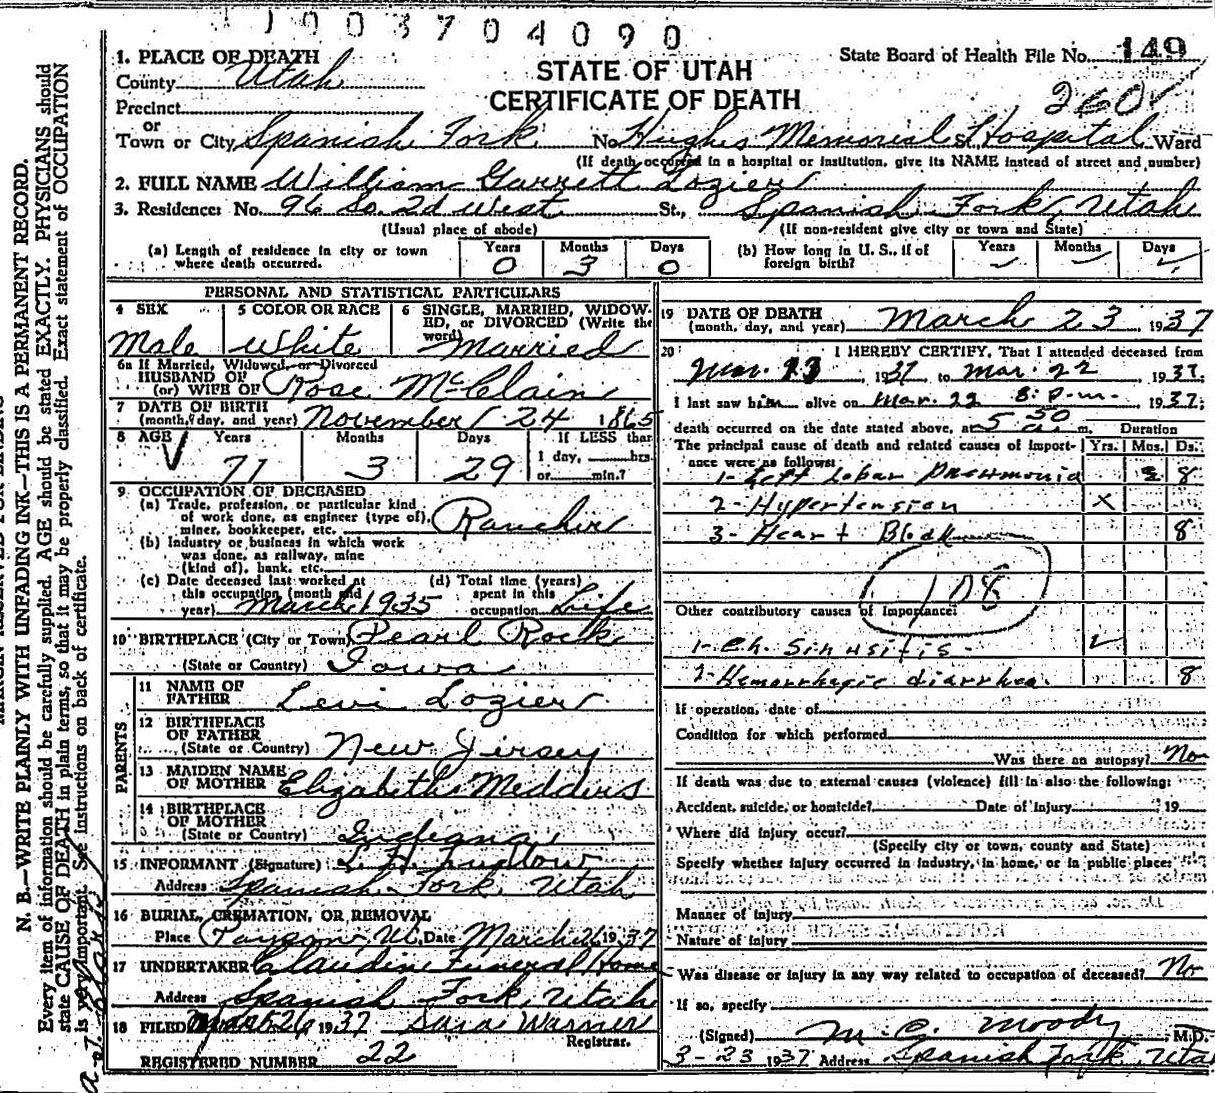 1 1 0 0 3 7 0 4 0 9 0
State Board of Health File No. 149
1. PLACE OF DEATH
County Utah
STATE OF UTAH
CERTIFICATE OF DEATH
260
Precinct
or
Town or City Spanish Fork No. Hughes Memorial St. Hospital Ward
(If death occurred in a hospital or institution, give its NAME instead of street and number)
2. FULL NAME William Garrett Lozier
3. Residence: No. 96 So. 2d West St., Spanish Fork, Utah
(Usual place of abode) (If non-resident give city or town and State)
(a) Length of residence in city or town where death occurred. Years 0 Months 3 Days 0
(b) How long in U. S., if of foreign birth? Years – Months – Days
PERSONAL AND STATISTICAL PARTICULARS
4 SEX Male
5 COLOR OR RACE White
6 SINGLE, MARRIED, WIDOWED, or DIVORCED (Write the word) Married
6a If Married, Widowed, or Divorced
HUSBAND OF
(or) WIFE OF Rose McClain
7 DATE OF BIRTH
(month, day, and year) November 24 1865
8 AGE Years 71 Months 3 Days 29 If LESS than 1 day, hrs. or min.?
9 OCCUPATION OF DECEASED
(a) Trade, profession, or particular kind of work done, as engineer (type of), miner, bookkeeper, etc. Rancher
(b) Industry or business in which work was done, as railway, mine (kind of), bank, etc.
(c) Date deceased last worked at this occupation (month and year) March 1935
(d) Total time (years) spent in this occupation Life
10 BIRTHPLACE (City or Town) Pearl Rock
(State or Country) Iowa
PARENTS
11 NAME OF FATHER Levi Lozier
12 BIRTHPLACE OF FATHER
(State or Country) New Jersey
13 MAIDEN NAME OF MOTHER Elizabeth Meddis
14 BIRTHPLACE OF MOTHER
(State or Country) Indiana
15 INFORMANT (Signature) L. A. Ludlow
Address Spanish Fork, Utah
16 BURIAL, CREMATION, OR REMOVAL
Place Payson, Ut. Date March 26 1937
17 UNDERTAKER Claudin Funeral Home
Address Spanish Fork, Utah
18 FILED March 26 1937 Sara Warner
Registrar.
REGISTERED NUMBER 22
19 DATE OF DEATH
(month, day, and year) March 23, 1937
20 I HEREBY CERTIFY, That I attended deceased from
Mar. 13 1937 to Mar. 22 1937.
I last saw him alive on Mar. 22 8: P.m. 1937;
death occurred on the date stated above, at 5 30 a. m. Duration
The principal cause of death and related causes of importance were as follows: Yrs. Mos. Ds.
1- Left Lobar Pneumonia 8
2- Hypertension X
3- Heart Block 8
108
Other contributory causes of importance:
1- Ch. Sinusitis-
2- Hemorrhagic diarrhea. 8
If operation, date of
Condition for which performed
Was there an autopsy? No
If death was due to external causes (violence) fill in also the following:
Accident, suicide, or homicide? Date of injury 19
Where did injury occur?
(Specify city or town, county and State)
Specify whether injury occurred in industry, in home, or in public place:
Manner of injury
Nature of injury
Was disease or injury in any way related to occupation of deceased? No
If so, specify
(Signed) M. C. Moody M.D.
3-23 1937 Address Spanish Fork, Utah
N. B.—WRITE PLAINLY WITH UNFADING INK—THIS IS A PERMANENT RECORD.
Every item of information should be carefully supplied. AGE should be stated EXACTLY. PHYSICIANS should
state CAUSE OF DEATH in plain terms, so that it may be properly classified. Exact statement of OCCUPATION
is very important. See instructions on back of certificate.